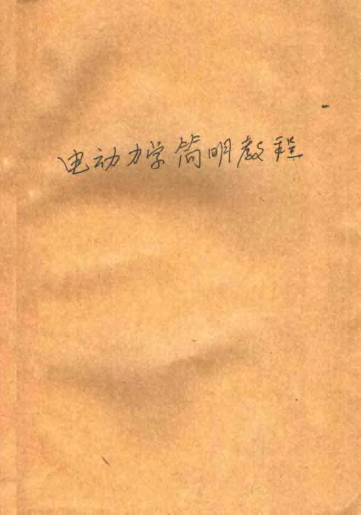 电动力学简明教程